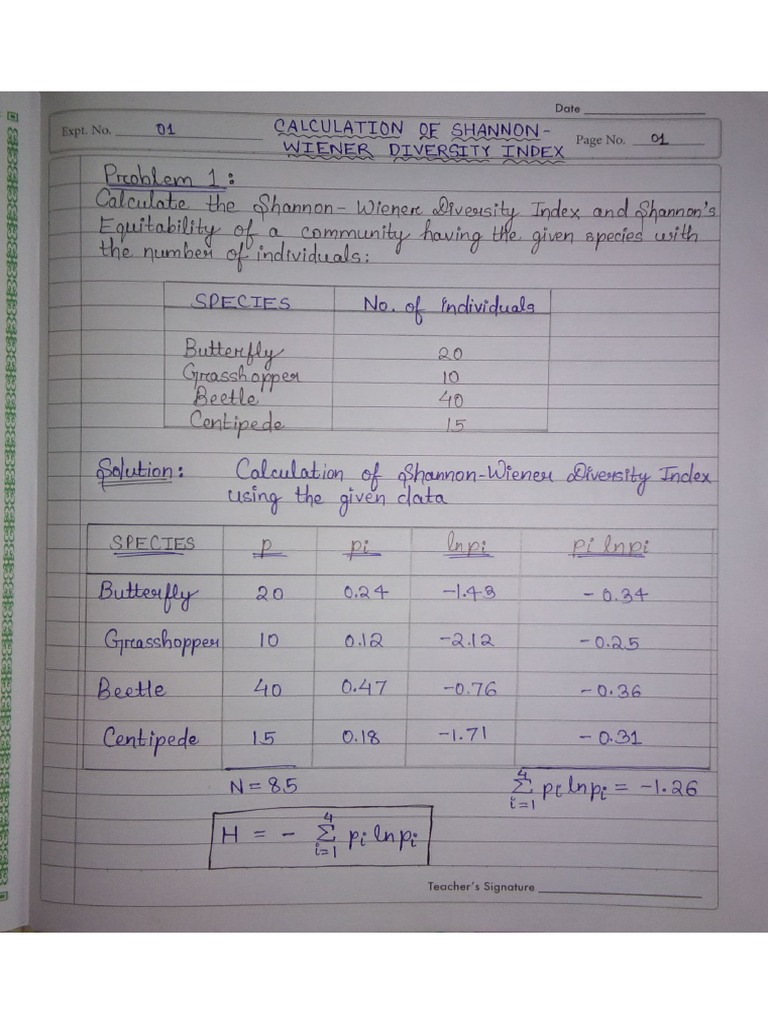 Date
Expt. No. 01
CALCULATION OF SHANNON-
WIENER DIVERSITY INDEX
Page No. 01
Problem 1:
Calculate the Shannon-Wiener Diversity Index and Shannon's
Equitability of a community having the given species with
the number of individuals:
SPECIES No. of individuals
Butterfly 20
Grasshopper 10
Beetle 40
Centipede 15
Solution: Calculation of Shannon-Wiener Diversity Index
using the given data
SPECIES p pi lnpi pi lnpi
Butterfly 20 0.24 -1.43 -0.34
Grasshopper 10 0.12 -2.12 -0.25
Beetle 40 0.47 -0.76 -0.36
Centipede 15 0.18 -1.71 -0.31
N = 85 4∑i=1 pi lnpi = -1.26
H = - 4∑i=1 pi lnpi
Teacher's Signature